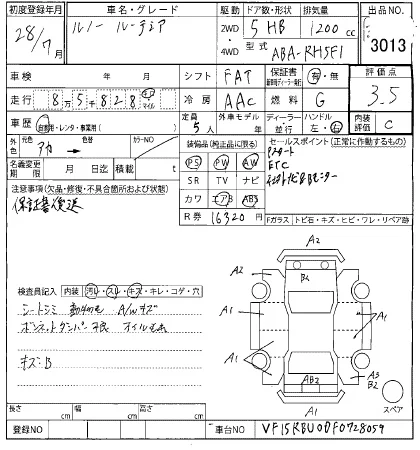 初度登録年月 車名・グレード 駆動 ドア数・形状 排気量 出品NO
28/7月 ルノー ルーテシア 2WD 5 HB 1200cc
4WD 型式 ABA-RH5F1 3013
車検 年 月 シフト FAT 保証書 有・無 評価点
走行 8万5828 km マイル 冷房 AAC 燃料 G 3.5
車歴 自家用・レンタ・事業用( ) 定員 5人 外車モデル 年 ディーラー 並行 ハンドル 左・右 内装評価 C
外色 元色 アカ 色替 カラーNO 装備品(純正品に限る) セールスポイント(正常に作動するもの)
PS PW AW Pスタート
名義変更期限 月 日迄 積載 t SR TV ナビ ETC
注意事項(欠品・修復・不具合箇所および状態) カワ エアB ABS
保証書後送 R券 16320円 Fガラス トビ石・キズ・ヒビ・ワレ・リペア跡
A2
A2 B2
検査員記入 内装 汚れ・スレ・キズ・キレ・コゲ・穴 A1 A1
シートシミ A/Wキズ
ボンネットダンパー オイル
A1 A3
キズ:B B2
AB2
A1 スペア
長さ cm 幅 cm 高さ cm
登録NO 車台NO VF15RBU0DF0728059